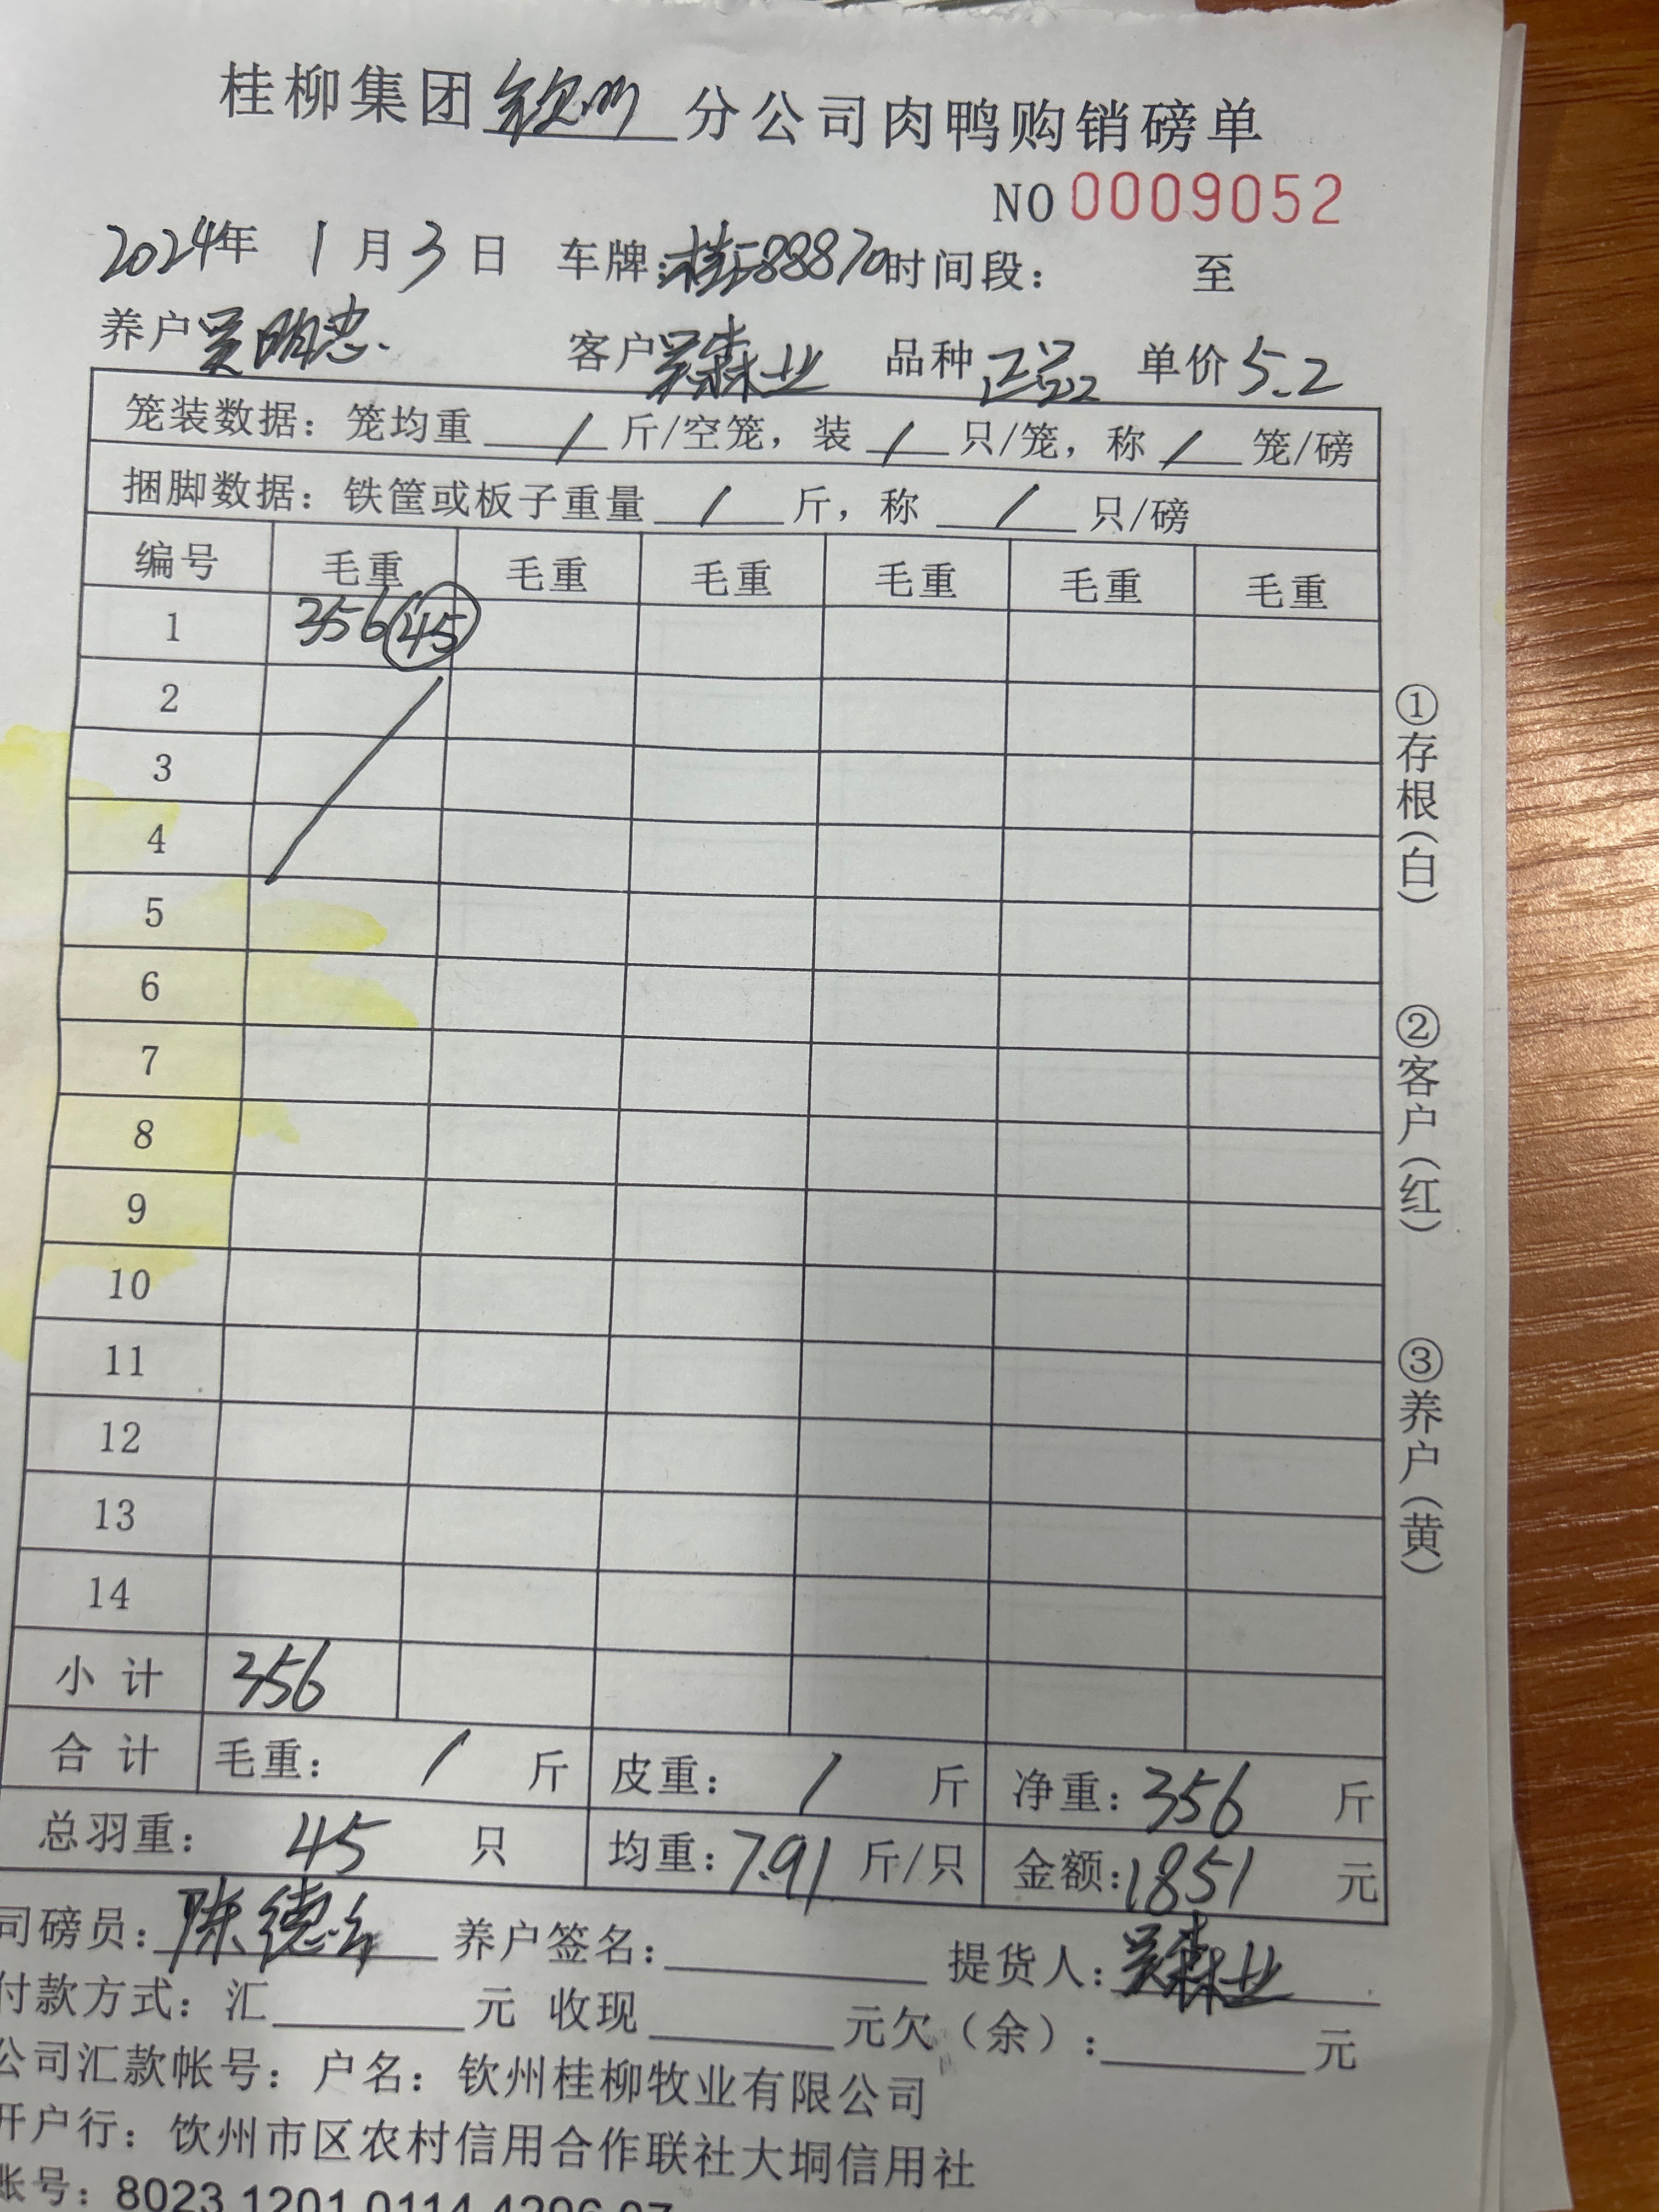 桂柳集团钦州分公司肉鸭购销磅单
NO 0009052
2024年 1月3日 车牌:桂 88870 时间段: 至
养户吴明忠 客户吴森业 品种正品 单价5.2
笼装数据: 笼均重 / 斤/空笼, 装 / 只/笼, 称 / 笼/磅
捆脚数据: 铁筐或板子重量 / 斤, 称 / 只/磅
编号 毛重 毛重 毛重 毛重 毛重 毛重
1 356 45
2
3
4
5
6
7
8
9
10
11
12
13
14
小 计 356
合 计 毛重: / 斤 皮重: / 斤 净重: 356 斤
总羽重: 45 只 均重: 7.91 斤/只 金额: 1851 元
司磅员: 陈德 养户签名: 提货人: 吴森业
付款方式: 汇 元 收现 元欠(余): 元
公司汇款帐号: 户名: 钦州桂柳牧业有限公司
开户行: 钦州市区农村信用合作联社大垌信用社
账号: 8023 1201 0114 4296 07
①存根(白)
②客户(红)
③养户(黄)